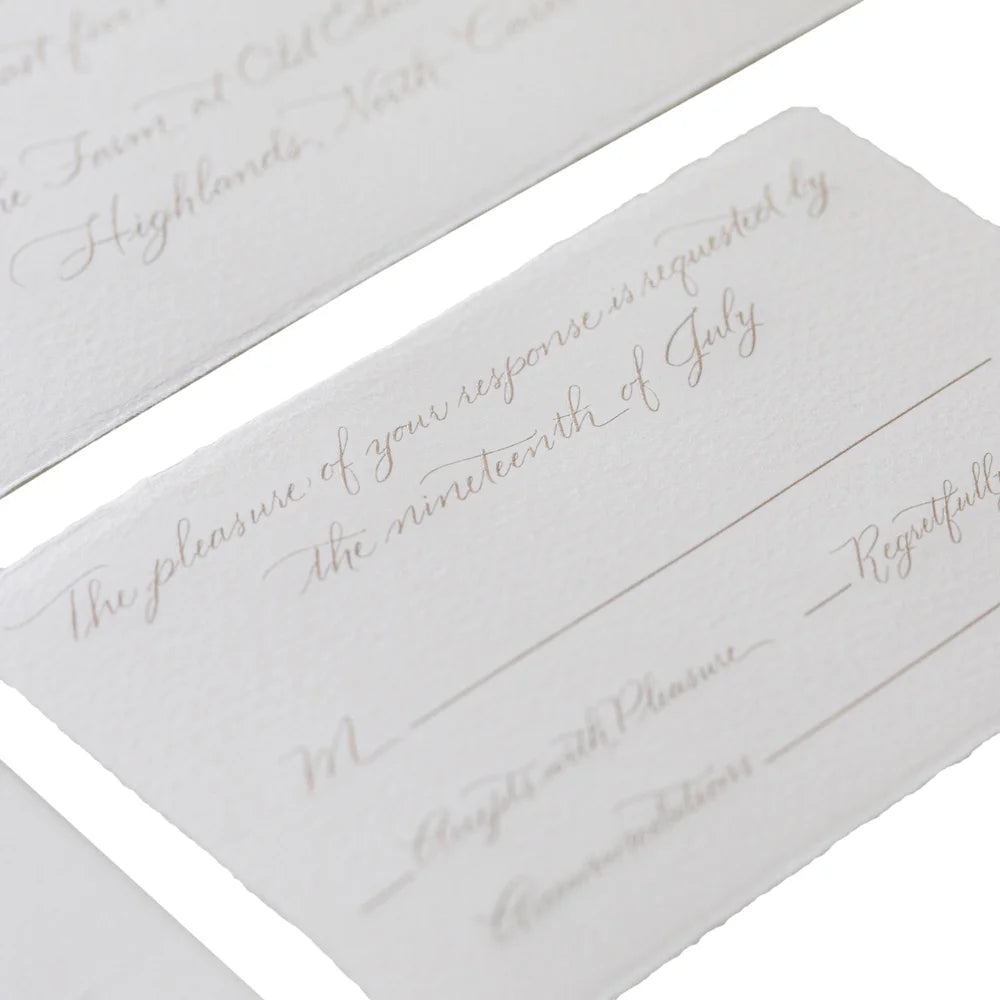 at Old
The Farm at Old
Highlands, North
The pleasure of your response is requested by
the nineteenth of July
M
Accepts with Pleasure
Regretfully
Accommodations